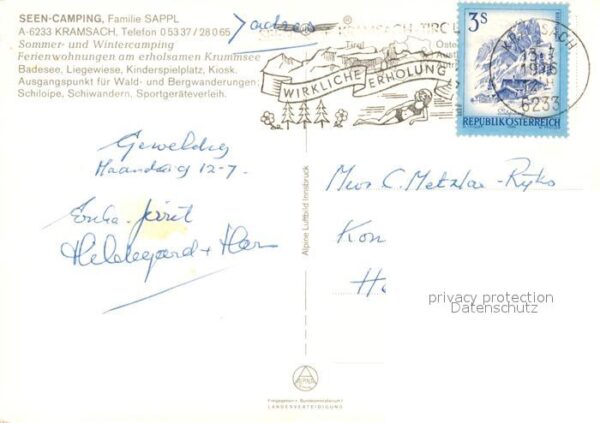 SEEN-CAMPING, Familie SAPPL
A-6233 KRAMSACH, Telefon 0 53 37 / 280 65
Sommer- und Wintercamping
Ferienwohnungen am erholsamen Krummsee
Badesee, Liegewiese, Kinderspielplatz, Kiosk.
Ausgangspunkt für Wald- und Bergwanderungen;
Schiloipe, Schiwandern, Sportgeräteverleih.
KRAMSACH, TIROL
Tirol
WIRKLICHE ERHOLUNG
KRAMSACH
6233
3S
REPUBLIK ÖSTERREICH
Geweldig
Maandag 12-7.
Hildegard + Han
Mevr C. Metzlar-
Kon
H
Alpine Luftbild Innsbruck
privacy protection
Datenschutz
Freigegeben v. Bundesministerium f.
LANDESVERTEIDIGUNG